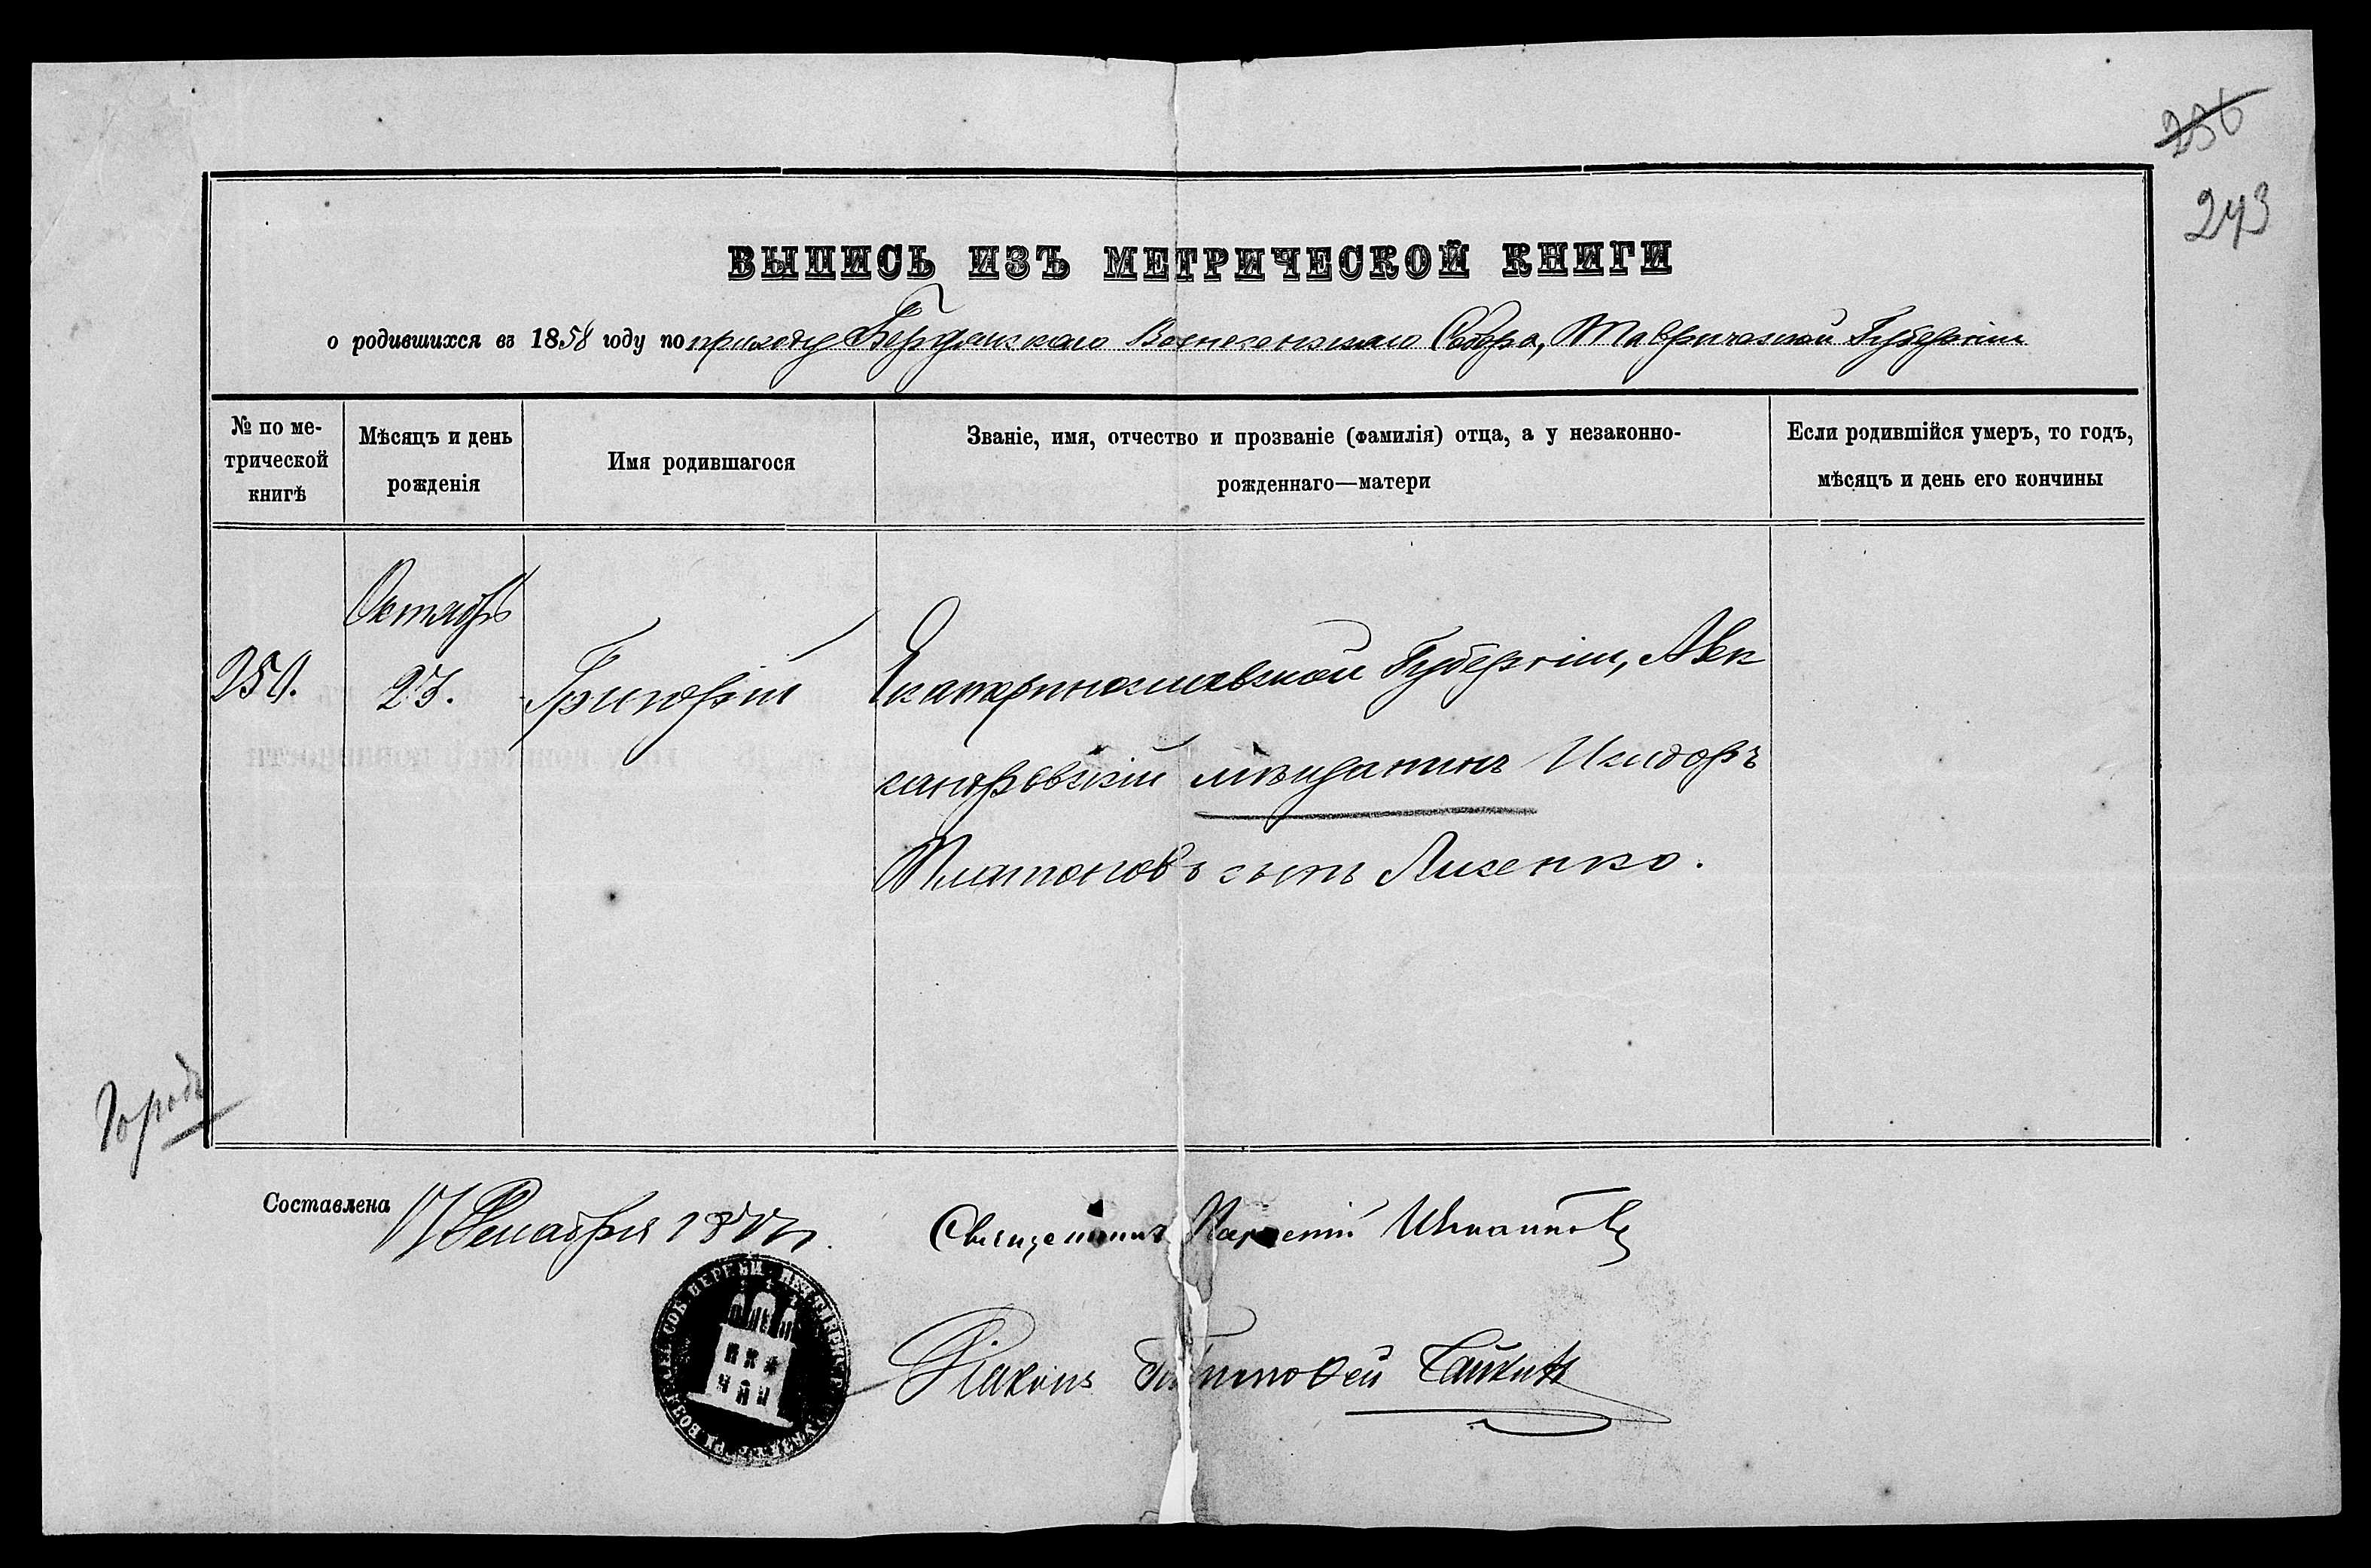 236
243
ВЫПИСЬ ИЗЪ МЕТРИЧЕСКОЙ КНИГИ
о родившихся въ 1858 году по приходу Бердянскаго Вознесенскаго Собора, Таврической Губерніи
№ по ме-
трической
книгѣ
Мѣсяцъ и день
рожденія
Имя родившагося
Званіе, имя, отчество и прозваніе (фамилія) отца, а у незаконно-
рожденнаго—матери
Если родившійся умеръ, то годъ,
мѣсяцъ и день его кончины
Октябрь
250.
23.
Григорій
Екатеринославской Губерніи, Алек
сандровскій мѣщанинъ Исидоръ
Платоновъ сынъ Лисенко.
Городъ
Составлена 17 Декабря
Священникъ
Діаконъ Тимофей